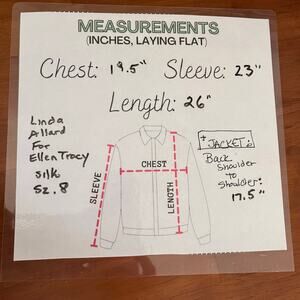 MEASUREMENTS
(INCHES, LAYING FLAT)
Chest: 19.5" Sleeve: 23"
Length: 26"
Linda
Allard
For
Ellen Tracy
silk
Sz. 8
JACKET
Back
Shoulder
to
Shoulder:
17.5"
CHEST
SLEEVE
LENGTH